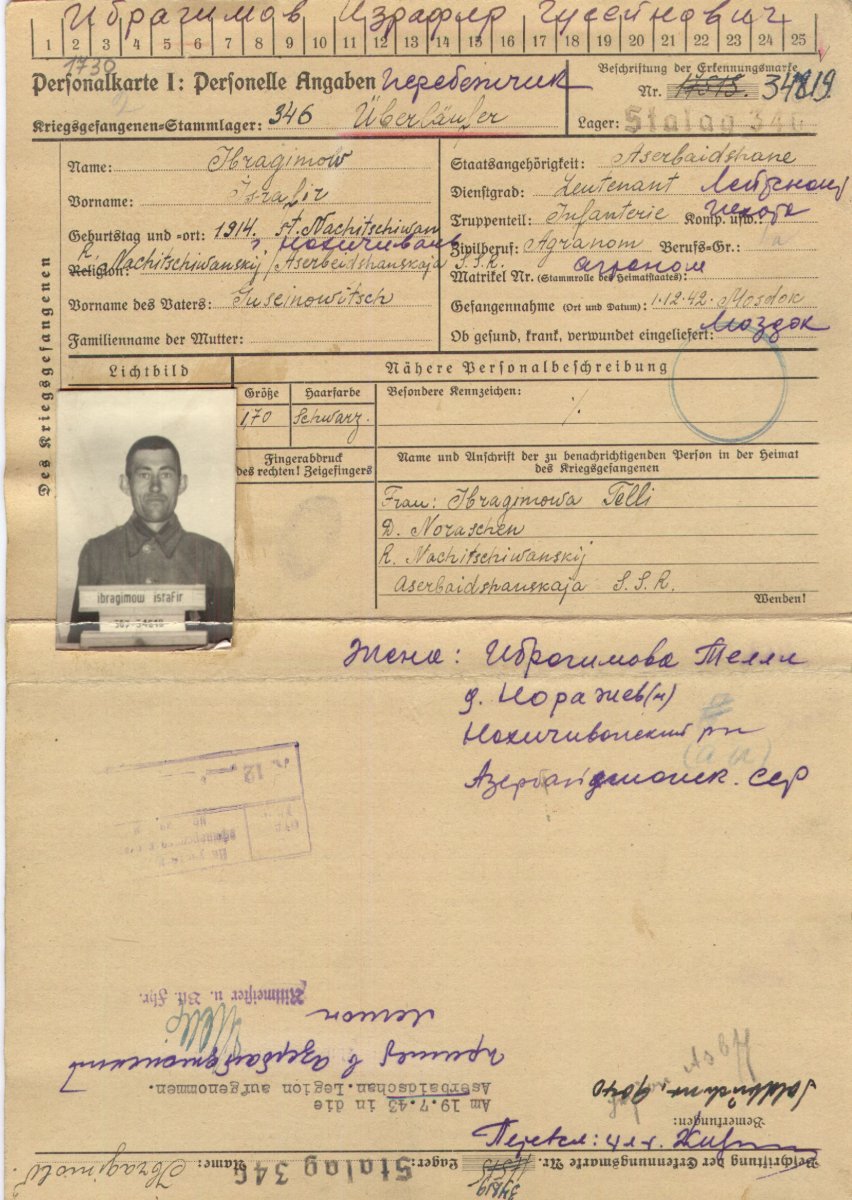 Ибрагимов Израфир Гусейнович
1 2 3 4 5 6 7 8 9 10 11 12 13 14 15 16 17 18 19 20 21 22 23 24 25
1730
Personalkarte I: Personelle Angaben Перебежчик
Beschriftung der Erkennungsmarke
Nr. 34819.
Kriegsgefangenen=Stammlager: 346 Überläufer
Lager: Stalag 346
Des Kriegsgefangenen
Name: Ibragimow
Vorname: Israfir
Geburtstag und =ort: 1914. st. Nachitschiwan
г. Нахичивань
Religion: R. Nachitschiwanskij / Aserbeidshanskaja S.S.R.
Vorname des Vaters: Guseinowitsch
Familienname der Mutter:
Staatsangehörigkeit: Aserbaidshane
Dienstgrad: Leutenant Лейтенант
Truppenteil: Infanterie Komp. usw.: пехота
Zivilberuf: Agranom Berufs=Gr.:
агроном
Matrikel Nr. (Stammrolle des Heimatstaates):
Gefangennahme (Ort und Datum): 1.12.42. Mosdok
Ob gesund, krank, verwundet eingeliefert: Моздок
Lichtbild
Nähere Personalbeschreibung
Größe
Haarfarbe
Besondere Kennzeichen:
1,70
Schwarz.
%
Fingerabdruck
des rechten! Zeigefingers
Name und Anschrift der zu benachrichtigenden Person in der Heimat
des Kriegsgefangenen
Frau: Ibragimowa Telli
D. Noraschen
R. Nachitschiwanskij
Aserbaidshanskaja S.S.R.
Wenden!
ibragimow istafir
Жена: Иброгимова Телли
д. Норажев(н)
Нахичиванский рн
Азербайджанск. ССР
12
Rittmeister u. Btl. Fhr.
легион
принят в Азербайджанский
Am 19.7.43 in die
Aserbaidschan.Legion aufgenommen.
Soldbuch nr. 9040
Bemerkungen:
Перевел:
Beschriftung der Erkennungsmarke Nr. 34819 Lager: Stalag 346 Name: Ibragimow.